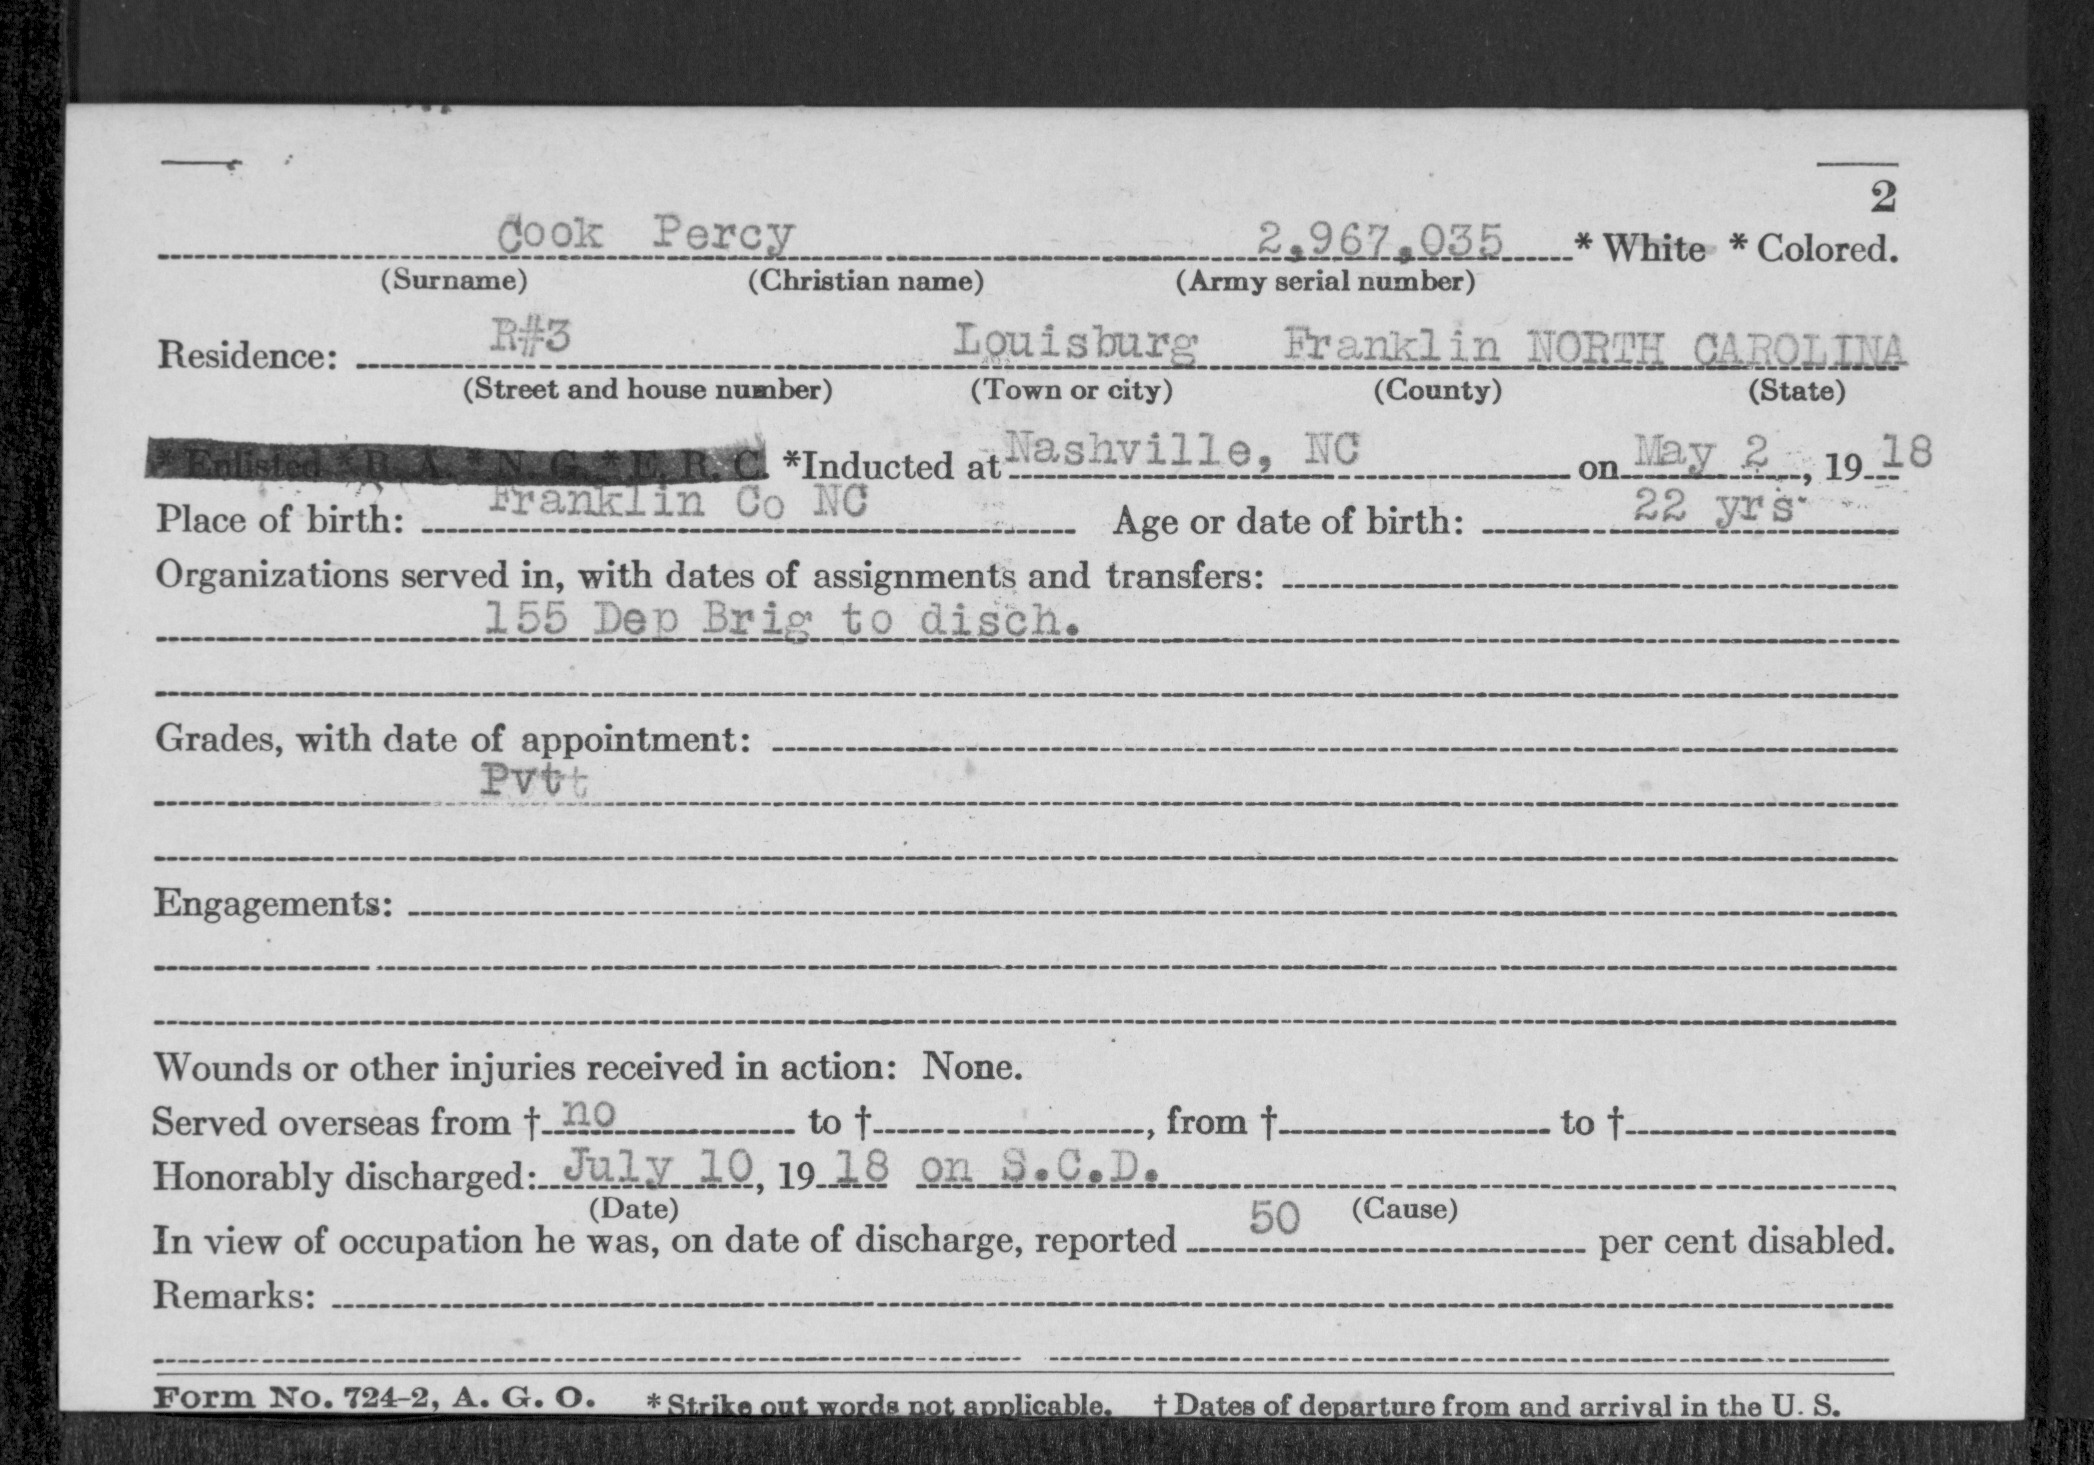 2
Cook Percy 2,967,035 * White * Colored.
(Surname) (Christian name) (Army serial number)
Residence: R#3 Louisburg Franklin NORTH CAROLINA
(Street and house number) (Town or city) (County) (State)
* Enlisted * R. A. * N. G. * E. R. C. *Inducted at Nashville, NC on May 2, 19 18
Place of birth: Franklin Co NC Age or date of birth: 22 yrs
Organizations served in, with dates of assignments and transfers:
155 Dep Brig to disch.
Grades, with date of appointment:
Pvtt
Engagements:
Wounds or other injuries received in action: None.
Served overseas from † no to †, from † to †
Honorably discharged: July 10, 19 18 on S.C.D.
(Date) (Cause)
In view of occupation he was, on date of discharge, reported 50 per cent disabled.
Remarks:
Form No. 724-2, A. G. O. * Strike out words not applicable. † Dates of departure from and arrival in the U. S.